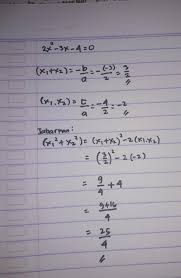 2x² - 3x - 4 = 0
(x₁+x₂) = -b/a = -(-3)/2 = 3/2 //
(x₁.x₂) = c/a = -4/2 = -2 //
Jabarman:
(x₁² + x₂²) = (x₁+x₂)² - 2(x₁.x₂)
= (3/2)² - 2(-2)
= 9/4 + 4
= 9+16/4
= 25/4 //